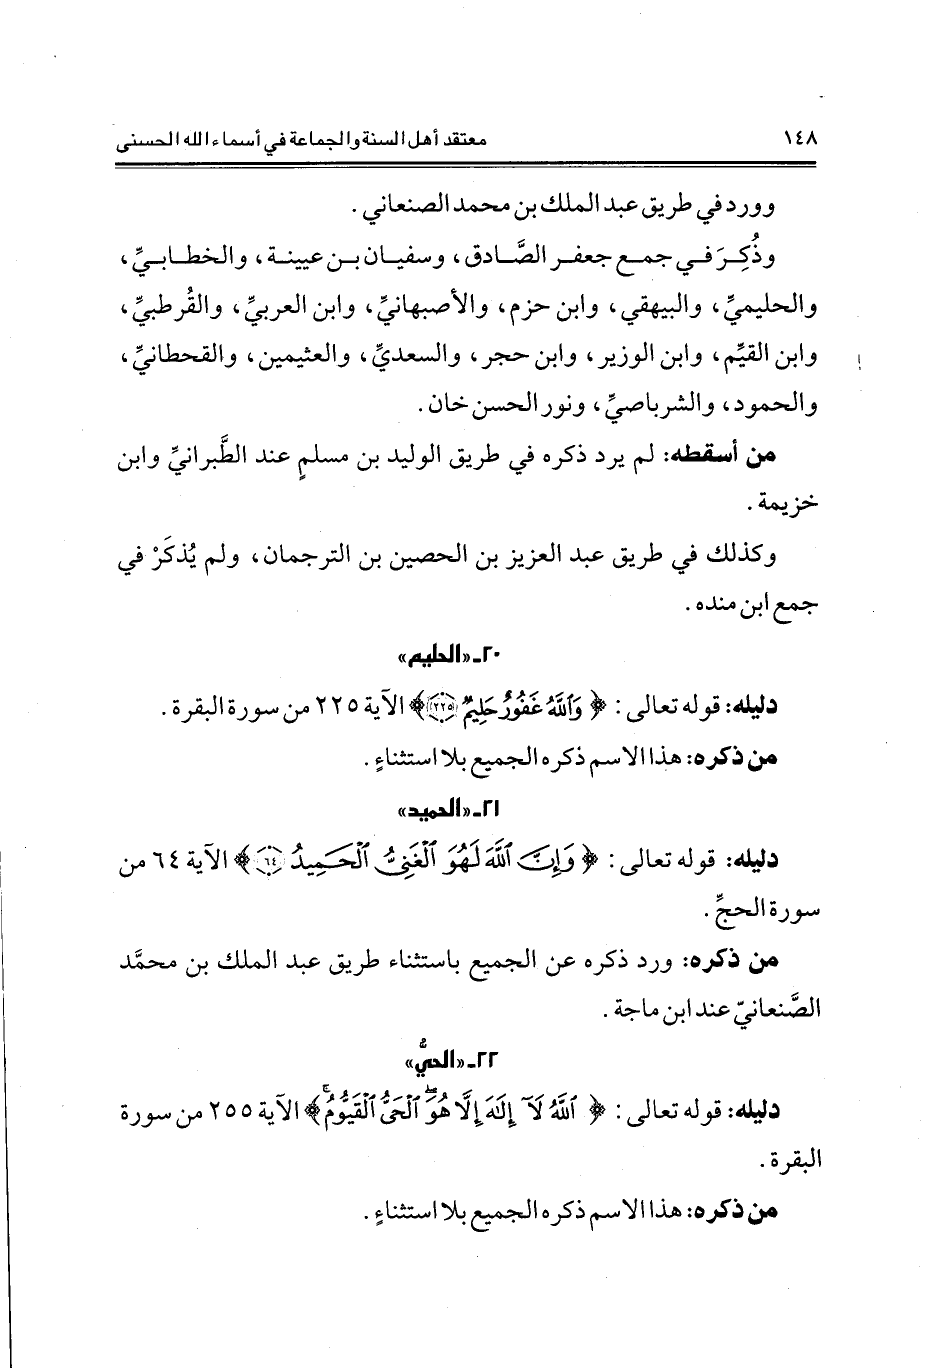 ١٤٨ معتقد أهل السنة والجماعة في أسماء الله الحسنى
وورد في طريق عبد الملك بن محمد الصنعاني .
وذُكِرَ في جمع جعفر الصَّادق، وسفيان بن عيينة، والخطابيِّ،
والحليميِّ، والبيهقي، وابن حزم، والأصبهانيِّ، وابن العربيِّ، والقُرطبيِّ،
وابن القيِّم، وابن الوزير، وابن حجر، والسعديِّ، والعثيمين، والقحطانيِّ،
والحمود، والشرباصيِّ، ونور الحسن خان .
من أسقطه: لم يرد ذكره في طريق الوليد بن مسلمٍ عند الطَّبرانيِّ وابن
خزيمة .
وكذلك في طريق عبد العزيز بن الحصين بن الترجمان، ولم يُذكَرْ في
جمع ابن منده .
٢٠ـ «الحليم»
دليله: قوله تعالى : ﴿ وَٱللَّهُ غَفُورٌ حَلِيمٌ ٢٢٥﴾ الآية ٢٢٥ من سورة البقرة .
من ذكره: هذا الاسم ذكره الجميع بلا استثناءٍ .
٢١ـ «الحميد»
دليله: قوله تعالى : ﴿ وَإِنَّ ٱللَّهَ لَهُوَ ٱلْغَنِىُّ ٱلْحَمِيدُ ٦٤﴾ الآية ٦٤ من
سورة الحجِّ .
من ذكره: ورد ذكره عن الجميع باستثناء طريق عبد الملك بن محمَّد
الصَّنعانيّ عند ابن ماجة .
٢٢ـ «الحيُّ»
دليله: قوله تعالى : ﴿ ٱللَّهُ لَآ إِلَٰهَ إِلَّا هُوَ ۖ ٱلْحَىُّ ٱلْقَيُّومُ ۚ﴾ الآية ٢٥٥ من سورة
البقرة .
من ذكره: هذا الاسم ذكره الجميع بلا استثناءٍ .